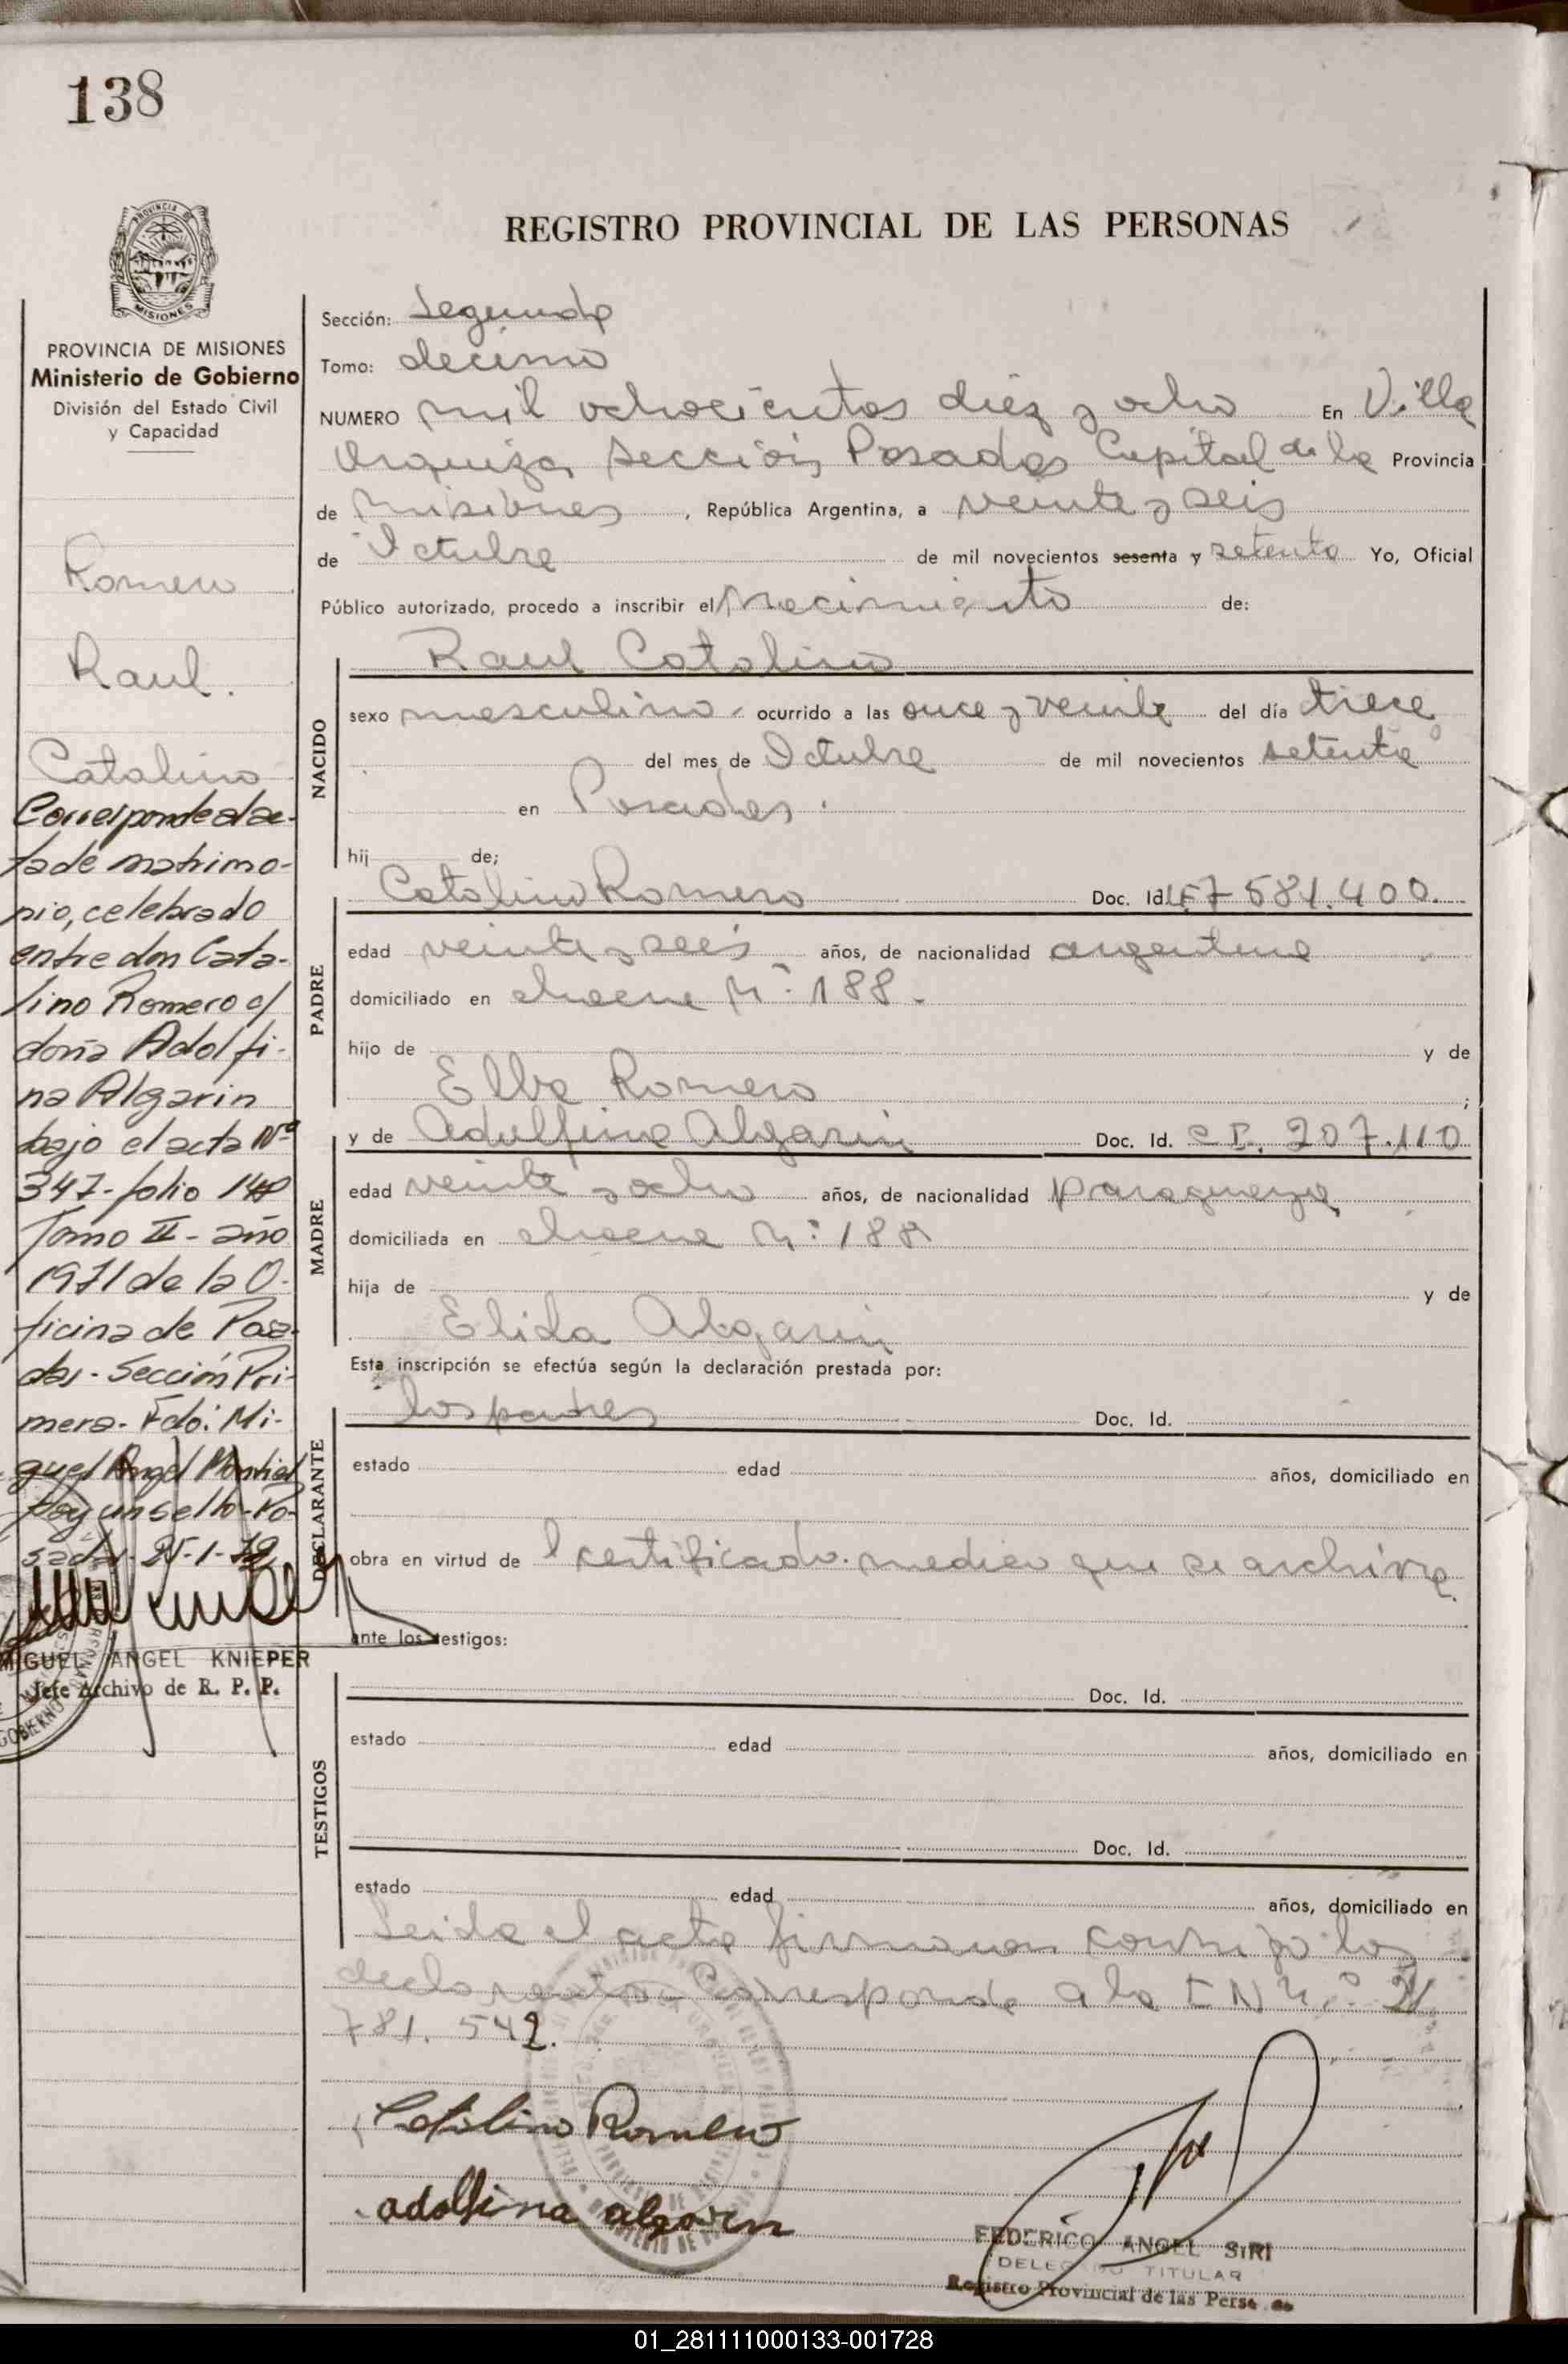 138
REGISTRO PROVINCIAL DE LAS PERSONAS
PROVINCIA DE MISIONES
MISIONES
PROVINCIA DE MISIONES
Ministerio de Gobierno
División del Estado Civil
y Capacidad
Romero
Raul.
Catalino
Corresponde al ac-
ta de matrimo-
nio, celebrado
entre don Cata-
lino Romero c/
doña Adolfi-
na Algarin
bajo el acta Nº
347-folio 148
Tomo II - año
1971 de la O-
ficina de Posa-
das - Sección Pri-
mera - Fdo: Mi-
guel Angel Montiel
hay un sello - Po-
sadas - 25-1-
MIGUEL ANGEL KNIEPER
Jefe Archivo de R. P. P.
Sección: Segunda
Tomo: decimo
NUMERO mil ochocientos diez y ocho En Villa
Urquiza, sección Posadas Capital de la Provincia
de Misiones, República Argentina, a veinte y seis
de Octubre de mil novecientos sesenta y setenta Yo, Oficial
Público autorizado, procedo a inscribir el Nacimiento de:
Raul Catalino
NACIDO
sexo masculino ocurrido a las once y veinte del día trece
del mes de Octubre de mil novecientos setenta
en Posadas.
hij de;
Catalino Romero Doc. Id. LE 7 581.400.
PADRE
edad veinte y seis años, de nacionalidad argentina
domiciliado en chacra N° 188.
hijo de y de
Elba Romero ;
y de Adolfina Algarin Doc. Id. CI. 207.110
MADRE
edad veinte y ocho años, de nacionalidad paraguaya
domiciliada en chacra N° 188
hija de y de
Elida Algarin
Esta inscripción se efectúa según la declaración prestada por:
los padres Doc. Id.
DECLARANTE
estado edad años, domiciliado en
obra en virtud de l certificado medico que se archiva.
ante los testigos:
Doc. Id.
TESTIGOS
estado edad años, domiciliado en
Doc. Id.
estado edad años, domiciliado en
Leida el acta firmaron conmigo los
declarantes Corresponde a la I N N° 21
781. 542.
Catalino Romero
adolfina algarin
FEDERICO ANGEL SIRI
DELEGADO TITULAR
Registro Provincial de las Personas
01_281111000133-001728